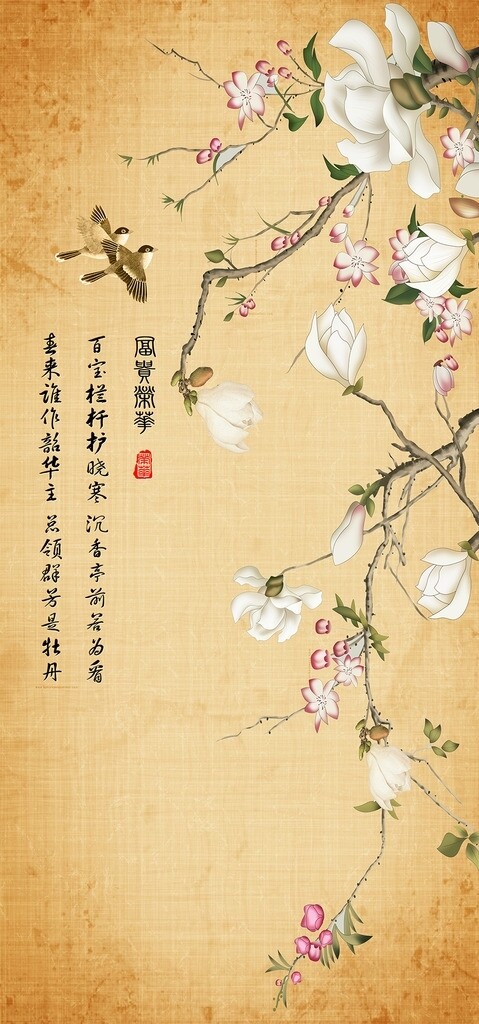 富貴榮華
百宝栏杆护晓寒 沉香亭前若为看
春来谁作韶华主 总领群芳是牡丹